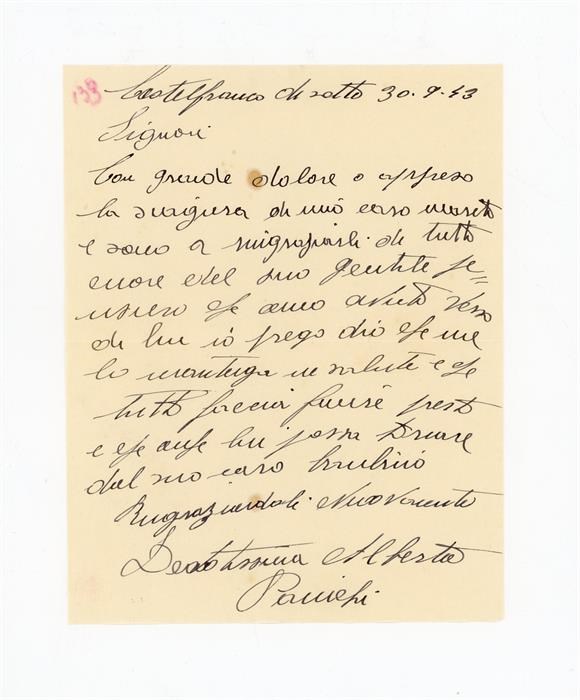 138
Castelfranco di sotto 30.9.43
Signori
Con grande dolore o appreso
la sciagura di mio caro marito
e sono a ringraziarli di tutto
cuore del suo gentile pe=
nsiero che anno avuto verso
di lui io prego dio che me
lo mantenga in salute e che
tutto faccia finire presto
e che anche lui possa tornare
dal suo caro bambino
Ringraziandoli Nuovamente
Devotissima Alberta